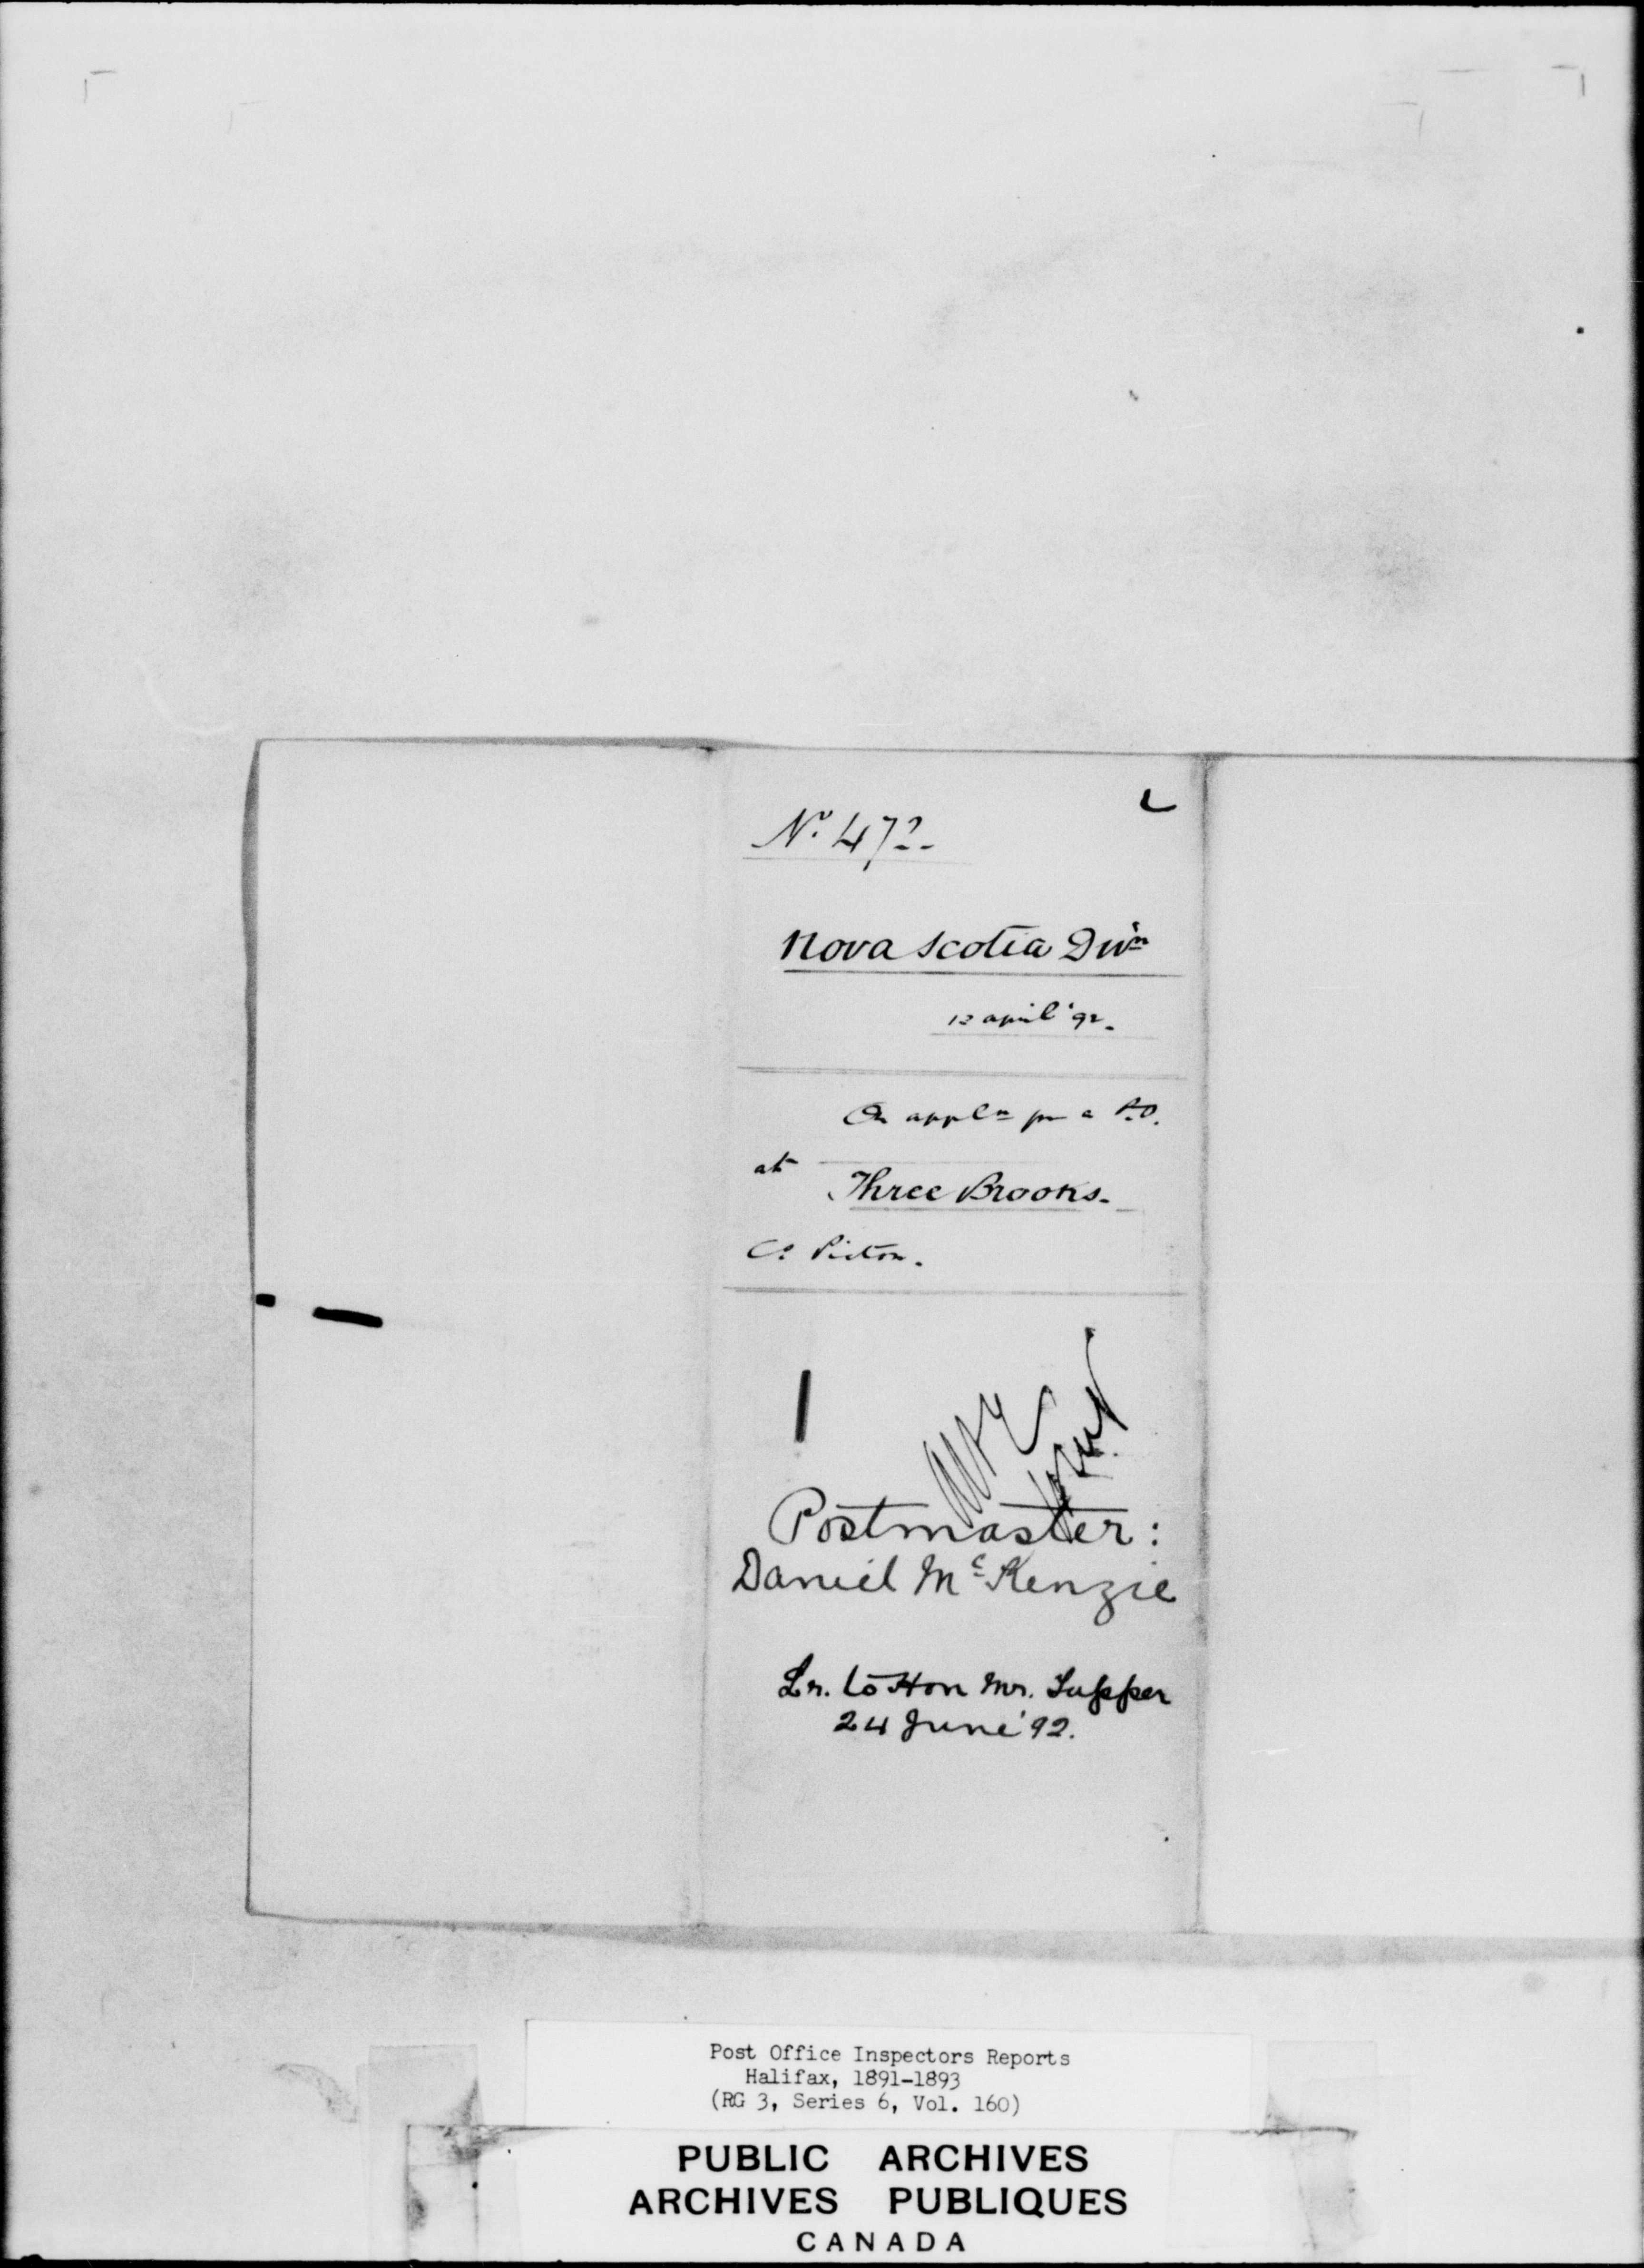 No. 472.
Nova Scotia Divn
12 april '92.
On appln for a P.O.
at
Three Brooks.
Co Pictou.
Postmaster:
Daniel McKenzie
Lr. to Hon Mr. Tupper
24 June '92.
Post Office Inspectors Reports
Halifax, 1891-1893
(RG 3, Series 6, Vol. 160)
PUBLIC ARCHIVES
ARCHIVES PUBLIQUES
CANADA